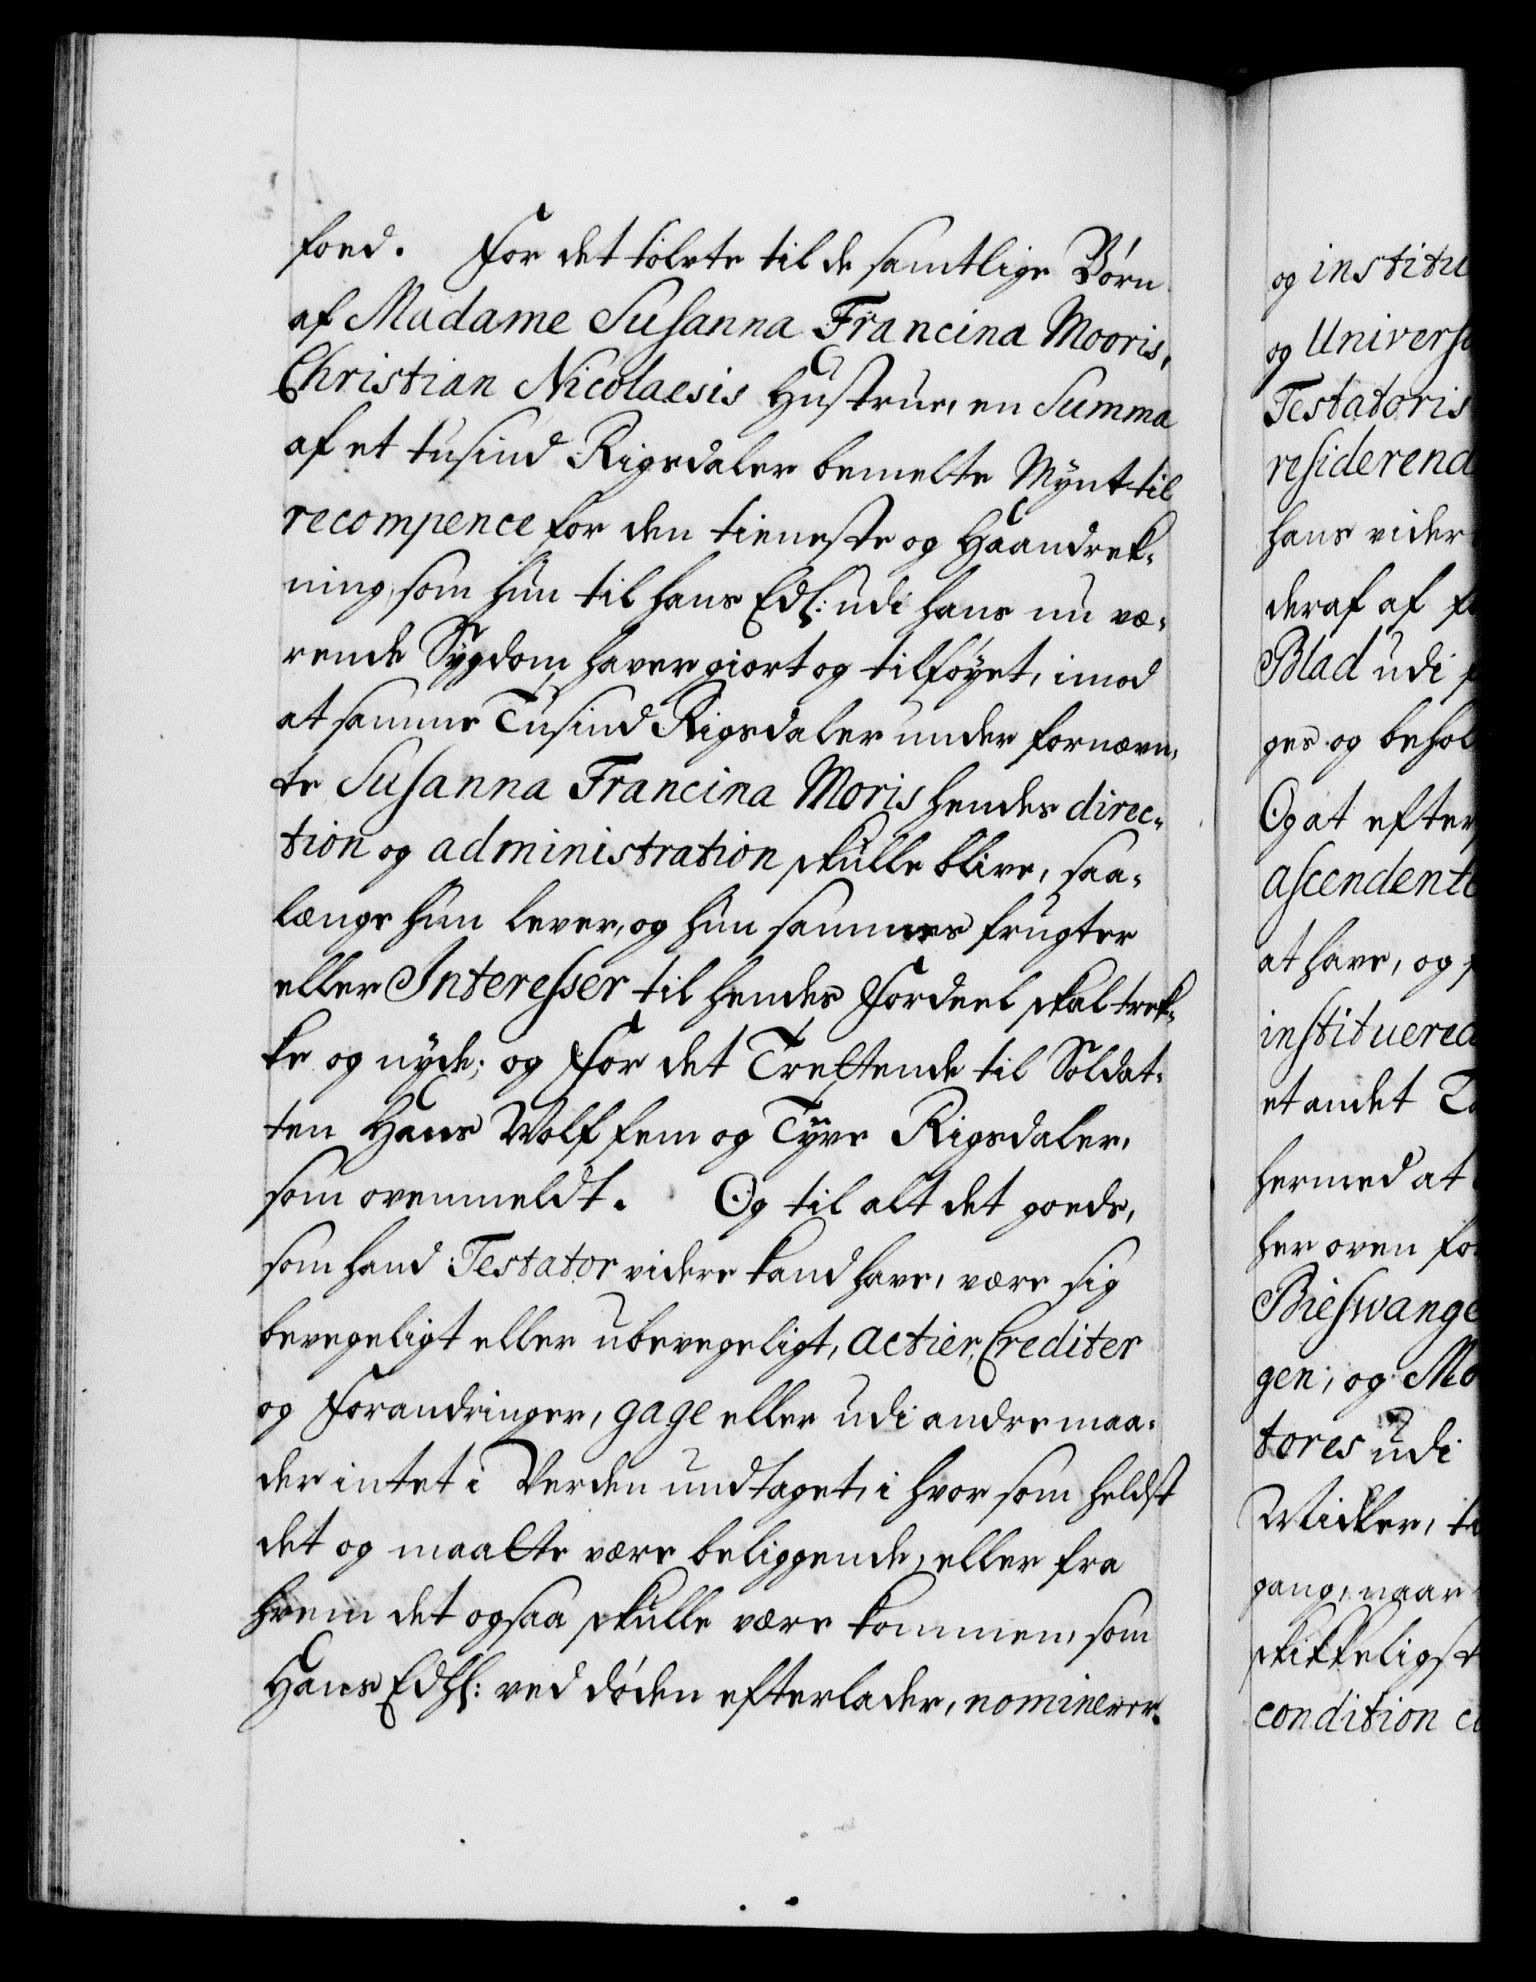 foed. For det tolvte til de samtlige Børn
af Madame Susanna Francina Mooris,
Christian Nicolaesis Hustrue, en Summa
af et tusind Rigsdaler bemelte Mynt til
recompence for den tieneste og Haandrek-
ning, som hun til hans Edl: udi hans nu væ-
rende Sygdom haver giort og tilføyet, imod
at samme Tusind Rigsdaler under fornævn-
te Susanna Francina Moris hendes direc-
tion og administration skulle blive, saa-
længe hun lever, og hun sammes frugter
eller Interesser til hendes Fordeel skal trek-
ke og nyde; og For det Trettende til Soldat-
ten Hans Wolff fem og Tyve Rigsdaler,
som ovenmeldt. Og til alt det goeds,
som hand Testator videre kand have, være sig
bevegeligt eller ubevegeligt, actier, Crediter
og Forandringer, gage eller udi andre maa-
der intet i Verden undtaget, i hvor som heldst
det og maatte være beliggende, eller fra
hvem det ogsaa skulle være kommen, som
Hans Edhl: ved døden efterlader, nominerer
og institu
og Universa
Testatoris
residerend
hans vider
deraf af
Blad udi
ges og behol
Og at efter
ascendente
at have, og
instituered
et andet
hermed at
her oven for
Bieswange
gen; og Mo
tores udi
Midler, ti
gang, naar
skikkeligst
condition